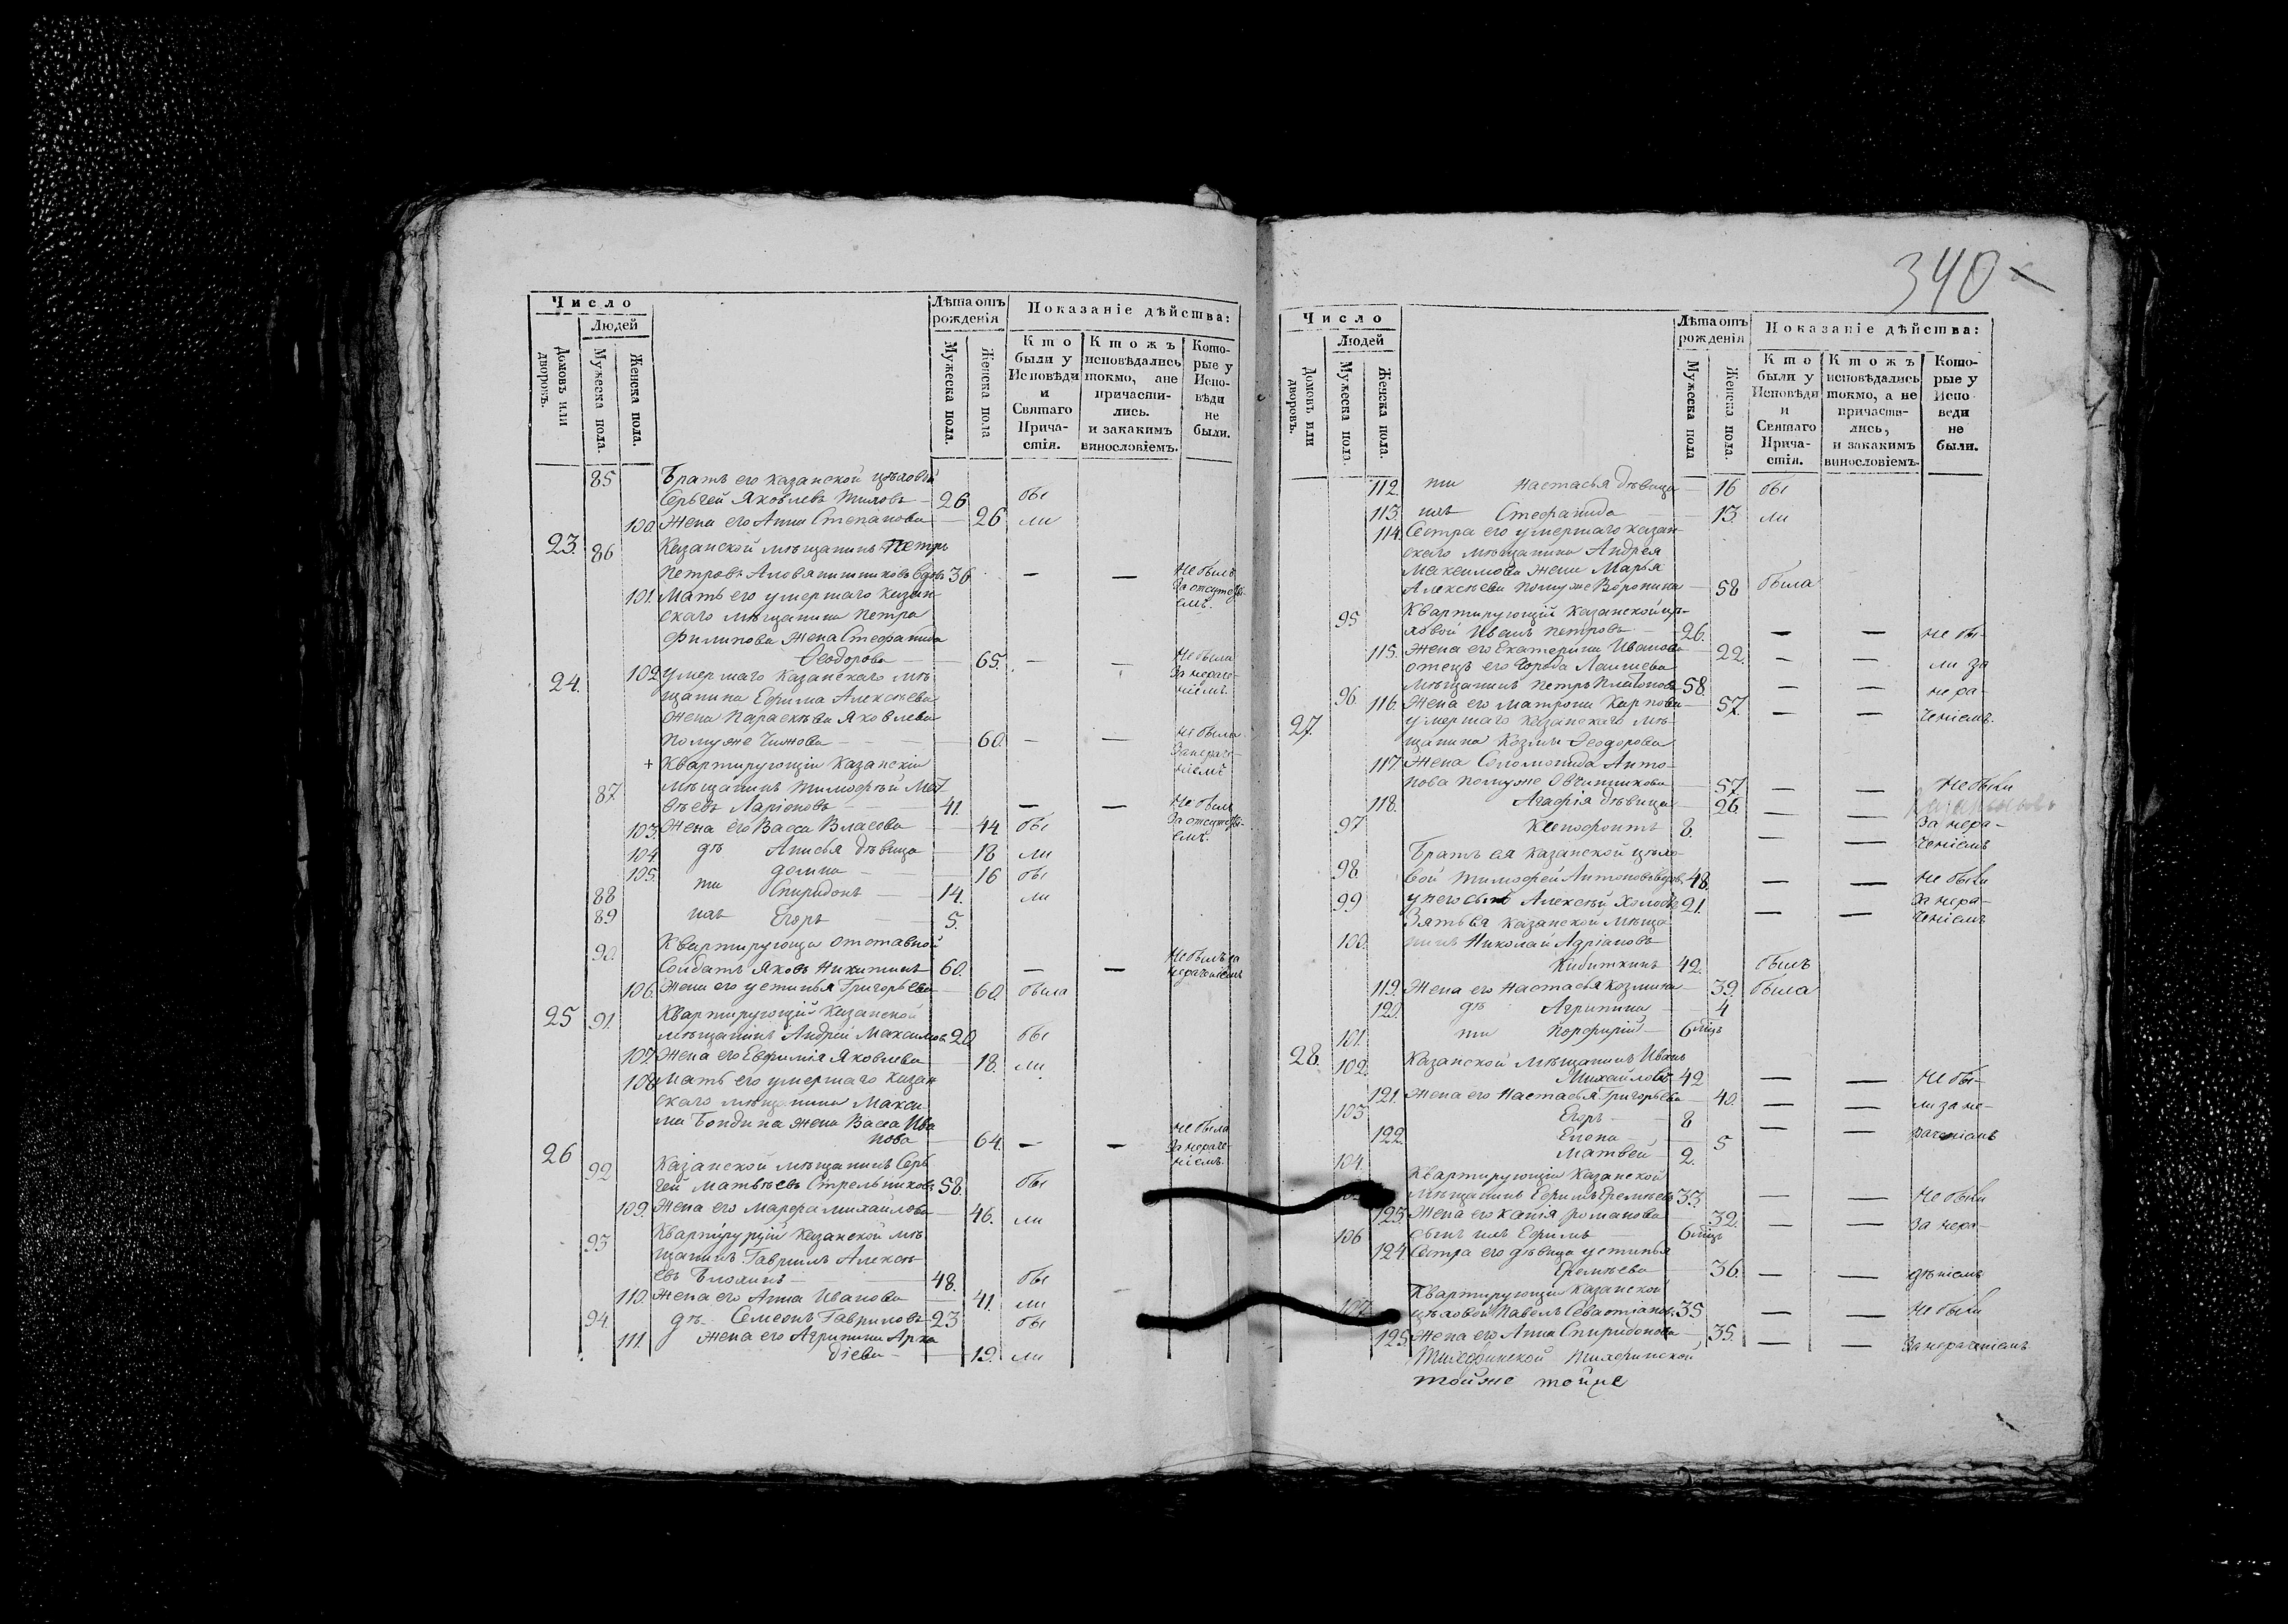 Число
Лѣта отъ рожденія
Показаніе дѣйства:
Людей
Домовъ или дворовъ.
Мужеска пола.
Женска пола.
Мужеска пола.
Женска пола
Кто были у Исповѣди и Святаго Причастія.
Ктожъ исповѣдались токмо, а не причастились. и закакимъ винословіемъ.
Которые у Исповѣди не были.
85 Братъ его казанской цѣховый
Сергей Яковлевъ 26 бы
100 Жена его Анна Степанова — 26 ли
23. 86 Казанской мѣщанинъ Петръ
Петровъ вдовъ 36 — — Не былъ
101. Мать его умершаго казан- За отсутстві-
скаго мѣщанина Петра емъ.
Филипова жена Стефанида
Ѳеодорова — 65. — — Не была
24. 102 Умершаго Казанскаго мѣ- За нераче-
щанина Ефима Алексѣева ніемъ.
жена Параскѣва Яковлева
помуже Чижова — — 60. — — не была
+ Квартирующіи Казанскіи За нераче-
87. мѣщанинъ Тимофѣй Мат ніемъ
вѣевъ Ларіоновъ — 41. — — Не былъ
103. Жена его Васса Власова — 44 бы За отсутстві-
104. дѣ Анисья дѣвица — 18 ли емъ.
105. — 16 бы
88 ти Спиридонъ — 14. ли
89 ихъ Егоръ — — 5.
90. Квартирующи отставной
Солдатъ Яковъ Никитинъ 60. — — Не былъ за
106. Жена его Устинья Григорьева — 60. была нераченіемъ
25 91. Квартирующій Казанской
мѣщанинъ Андрей Максимов. 20 бы
107 Жена его Евфимія Яковлева — 18. ли
108 Мать его умершаго казан
скаго мѣщанина Макси
ма Бондина жена Васса Ива
нова — 64. — — Не была
26 За нераче-
92 Казанской мѣщанинъ Сер ніемъ.
гей Матвѣевъ Стрельниковъ 58. бы
109. Жена его Марфа Михайлова — 46. ли
93 Квартирующій Казанской мѣ
щанинъ Гавриилъ Алексѣ
евъ — 48. бы
110. Жена его Анна Иванова — 41. ли
94. дѣ. Семеонъ Гавриловъ 23 бы
111. жена его Агрипина Арка
діева — 19. ли
340
Число
Лѣта отъ рожденія
Показаніе дѣйства:
Людей
Домовъ или дворовъ.
Мужеска пола.
Женска пола.
Мужеска пола
Женска пола.
Кто были у Исповѣди и Святаго Причастія.
Ктожъ исповѣдались токмо, а не причастились, и закакимъ винословіемъ.
Которые у Исповеди не были.
112. ти Настасья дѣвица — 16 бы
113. ихъ Стефанида — 13. ли
114. Сестра его умершаго казан-
скаго мѣщанина Андрея
Максимова жена Марья
Алексѣева помуже Воронина — 58 была
95 Квартирующій Казанской цѣ-
ховой Иванъ Петровъ — 26. — — не бы-
115. Жена его Екатерина Иванова — 22. — — ли за
отецъ его города Лаишева
96. мѣщанинъ Петръ Платоновъ 58. — — нера-
116. Жена его Матрона Карпова — 57. — — ченіемъ.
27. умершаго Казанскаго мѣ-
щанина Козмы Ѳеодорова
117 Жена Соломонида Анто-
нова помуже Овчинникова — 57. — — Не были
118. Агафія дѣвица — 26. — — За нера-
97 Ксенофонтъ 8. — — ченіемъ
Братъ ея Казанской цѣхо-
98 вой Тимофей Антоновъ вдов. 48. — — Не были
99 у него сынъ Алексѣй Холостъ 21. — — За нера-
Зять ея казанской мѣща ченіемъ
100. нинъ Николай Адріановъ
Кибиткинъ 42. былъ
119. Жена его Настасья Козмина — 39. была
120. дѣ Агрипина — 4
101. ти Порфирій — 6 мѣць
28. 102. Казанской мѣщанинъ Иванъ
Михайловъ 42 — — Не бы-
121. Жена его Настасья Григорьева — 40. — — ли за не-
103 Егоръ — 8 — — раченіемъ
122. Елена — 5
104. Матвей — 2.
Квартирующіи Казанской
мѣщанинъ Ефимъ Еремѣевъ 33. — — Не были
123. Жена его Романова — 32. — — За нера-
106 сынъ ихъ Ефимъ — 6 мѣць
124 Сестра его дѣвица Устинья
Еремѣева — 36. — — дѣніемъ
Квартирующіи Казанской
107 цѣховой Павелъ Севастіанов. 35 — — Не были
125 Жена его Анна Спиридонова — 35. — — За нераченіемъ.
Тихфинской Тихфинской
тойже тойже